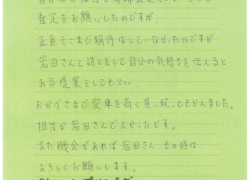 査定をお願いしたのですが、
正直そこまで期待はしていなかったのですが
岩田さんと話しをして自分の気持ちを伝えると
ある提案をしてもらい、
おかげさまで愛車を高く買い取ってもらえました。
担当が岩田さんでよかったです。
また機会があれば岩田さん、その時は
よろしくお願いします。